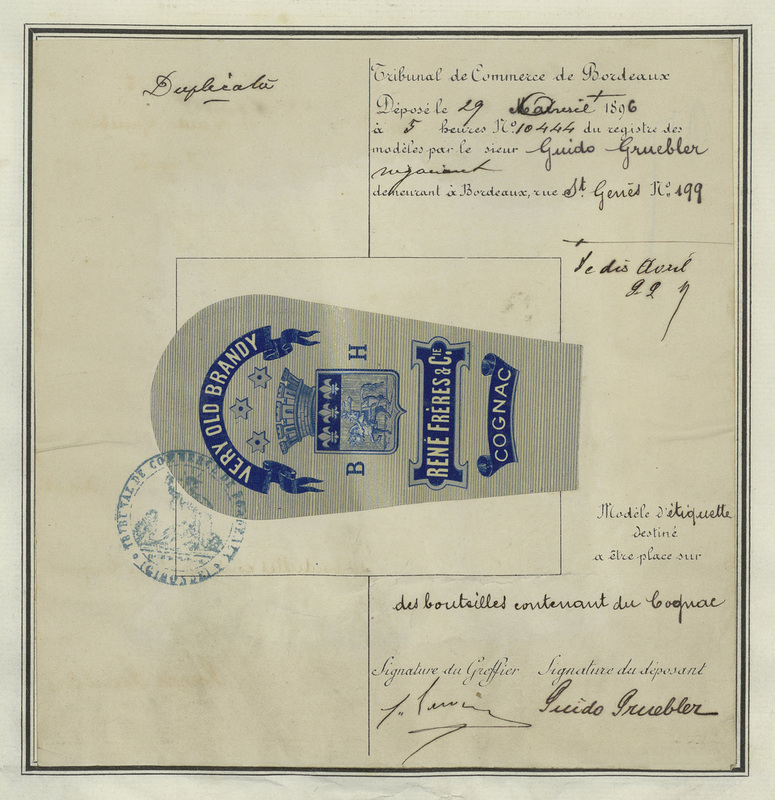 Duplicata
Tribunal de Commerce de Bordeaux
Déposé le 29 1896
à 5 heures N° 10444 du registre des
modèles par le sieur Guido Gruebler
négociant
demeurant à Bordeaux, rue St. Genès N° 199
Je dis Avril
VERY OLD BRANDY
B H
RENÉ FRÈRES & CIE.
COGNAC
TRIBUNAL DE COMMERCE DE BORDEAUX
(GIRONDE)
Modèle d'étiquette
destiné
a être place sur
des bouteilles contenant du Cognac
Signature du Greffier Signature du déposant
Guido Gruebler